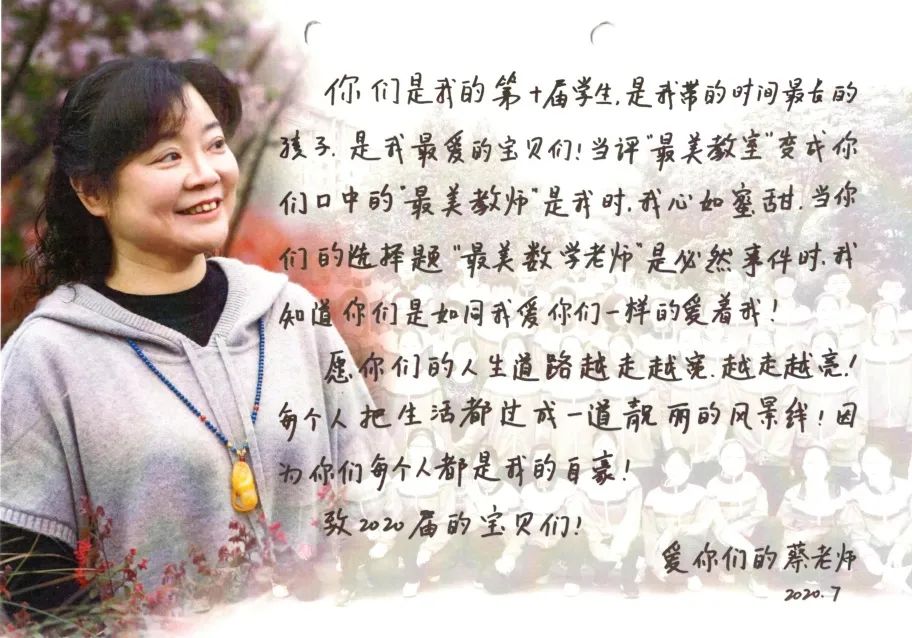 你们是我的第十届学生，是我带的时间最长的
孩子，是我最爱的宝贝们！当评“最美教室”变成你
们口中的“最美教师”是我时，我心如蜜甜，当你
们的选择题“最美数学老师”是必然事件时，我
知道你们是如同我爱你们一样的爱着我！
愿你们的人生道路越走越宽，越走越亮！
每个人把生活都过成一道靓丽的风景线！因
为你们每个人都是我的自豪！
致2020届的宝贝们！
爱你们的蔡老师
2020.7